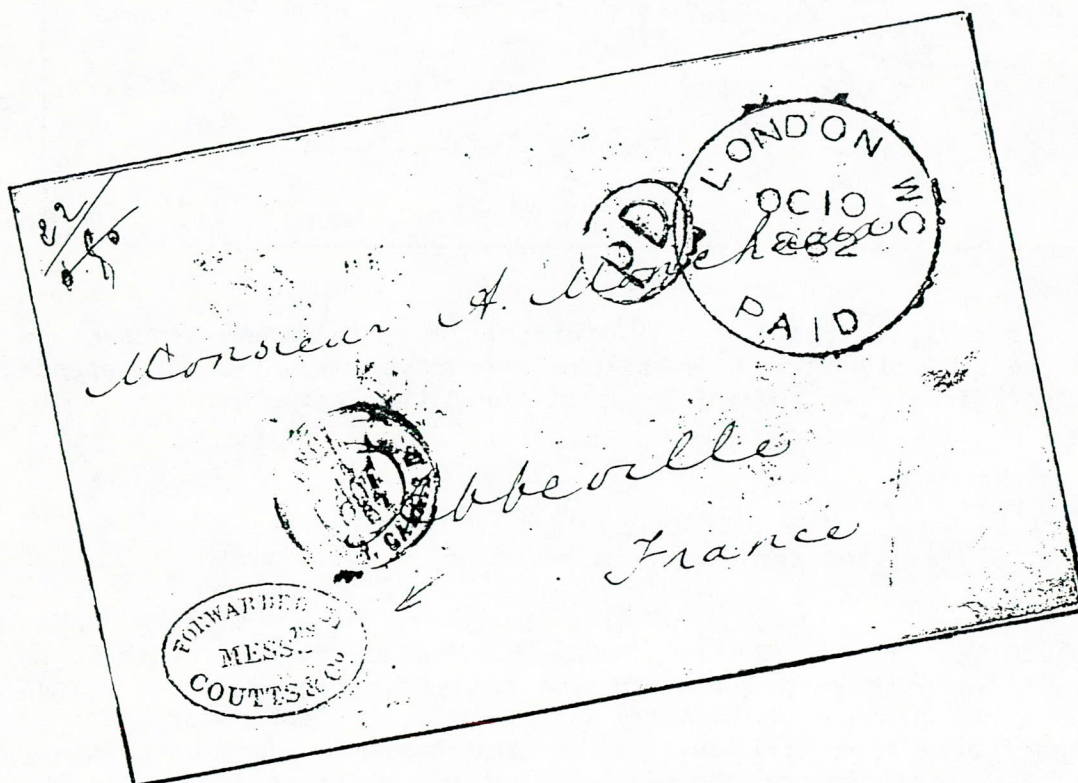 22/
LONDON WC
OC 10
82
PAID
PD
Monsieur A.
Abbeville
France
CALAIS
FORWARDED BY
MESS.RS
COUTTS & Co